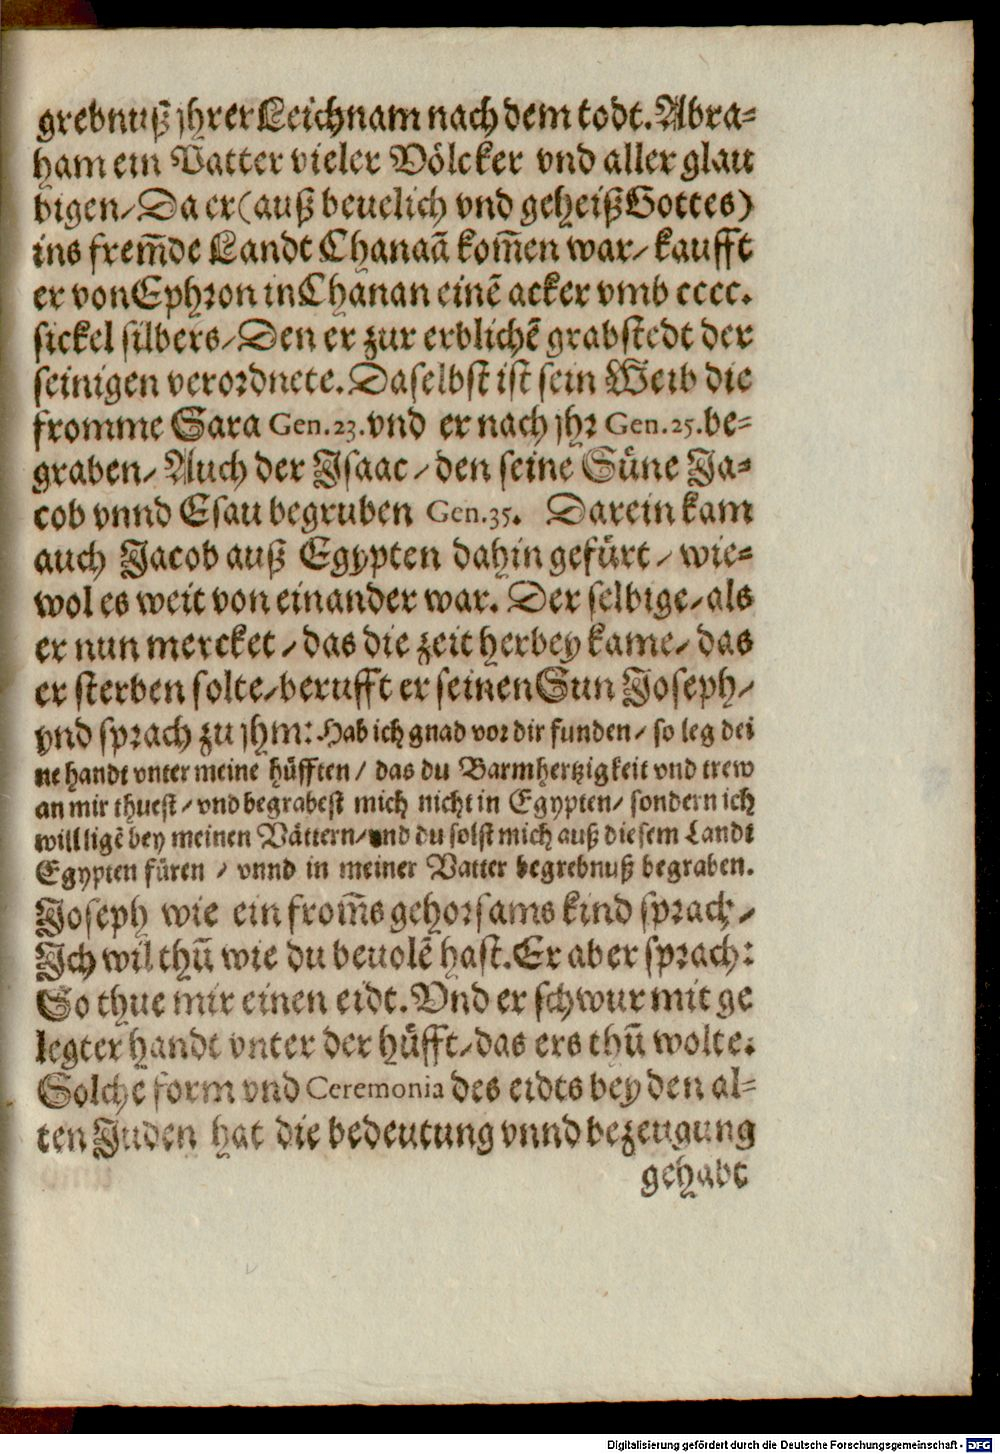 grebnuß jhrer Leichnam nach dem todt. Abra-
ham ein Vatter vieler Völcker vnd aller glau
bigen/ Da er (auß beuelich vnd geheiß Gottes)
ins frem̃de Landt Chanaã kom̃en war/ kaufft
er von Ephron in Chanan einẽ acker vmb cccc.
sickel silbers/ Den er zur erblichẽ grabstedt der
seinigen verordnete. Daselbst ist sein Weib die
fromme Sara Gen.23. vnd er nach jhr Gen.25. be-
graben/ Auch der Isaac/ den seine Süne Ja-
cob vnnd Esau begruben Gen.35. Darein kam
auch Jacob auß Egypten dahin gefürt/ wie-
wol es weit von einander war. Der selbige/ als
er nun mercket/ das die zeit herbey kame/ das
er sterben solte/ berufft er seinen Sun Joseph/
vnd sprach zu jhm: Hab ich gnad vor dir funden/ so leg dei
ne handt vnter meine hüfften/ das du Barmhertzigkeit vnd trew
an mir thuest/ vnd begrabest mich nicht in Egypten/ sondern ich
will ligẽ bey meinen Vättern/ vnd du solst mich auß diesem Landt
Egypten füren/ vnnd in meiner Vatter begrebnuß begraben.
Joseph wie ein from̃s gehorsams kind sprach/
Ich wil thũ wie du beuolẽ hast. Er aber sprach:
So thue mir einen eidt. Vnd er schwur mit ge
legter handt vnter der hüfft/ das ers thũ wolte.
Solche form vnd Ceremonia des eidts bey den al-
ten Juden hat die bedeutung vnnd bezeugung
gehabt
Digitalisierung gefördert durch die Deutsche Forschungsgemeinschaft - DFG